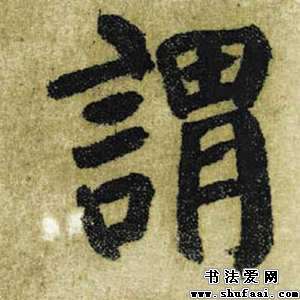 謂
书法爱网
www.shufaai.com